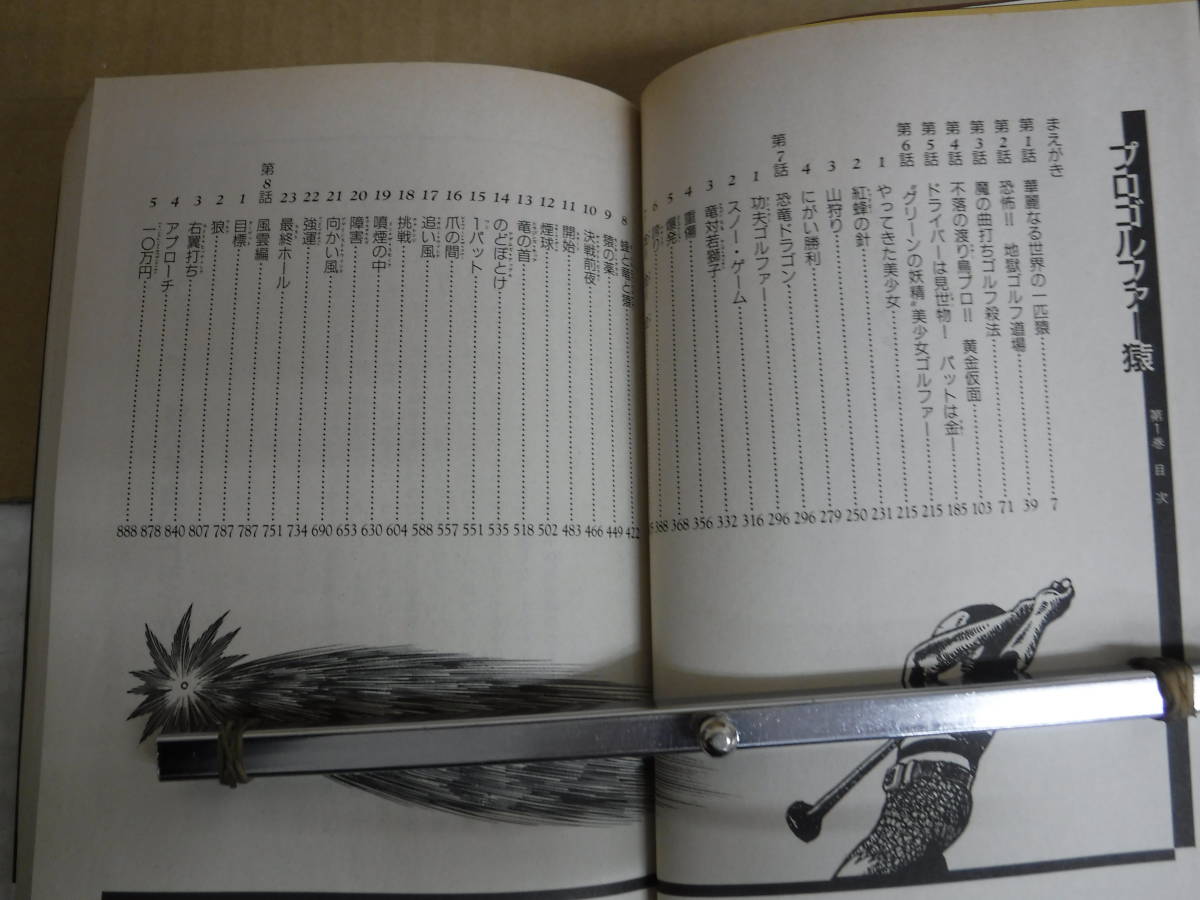 プロゴルファー猿
第1巻 目次
まえがき 7
第1話 華麗なる世界の一匹猿 39
第2話 恐怖!! 地獄ゴルフ道場 71
第3話 魔の曲打ちゴルフ殺法 103
第4話 不落の渡り鳥プロ!! 黄金仮面 185
第5話 ドライバーは見世物! パットは金! 215
第6話 “グリーンの妖精”美少女ゴルファー! 215
1 やってきた美少女 231
2 紅蜂の針 250
3 山狩り 279
4 にがい勝利 296
第7話 恐竜ドラゴン 296
1 功夫ゴルファー 316
2 スノー・ゲーム 332
3 竜対若獅子 356
4 重傷 368
5 爆発 388
6
8 蜂と竜と猿 422
9 猿の薬 449
10 決戦前夜 466
11 開始 483
12 煙球 502
13 竜の首 518
14 のどぼとけ 535
15 1パット 551
16 爪の間 557
17 追い風 588
18 挑戦 604
19 噴煙の中 630
20 障害 653
21 向かい風 690
22 強運 734
23 最終ホール 751
第8話 風雲編 787
1 目標 787
2 狼 807
3 右翼打ち 840
4 アプローチ 878
5 一〇万円 888